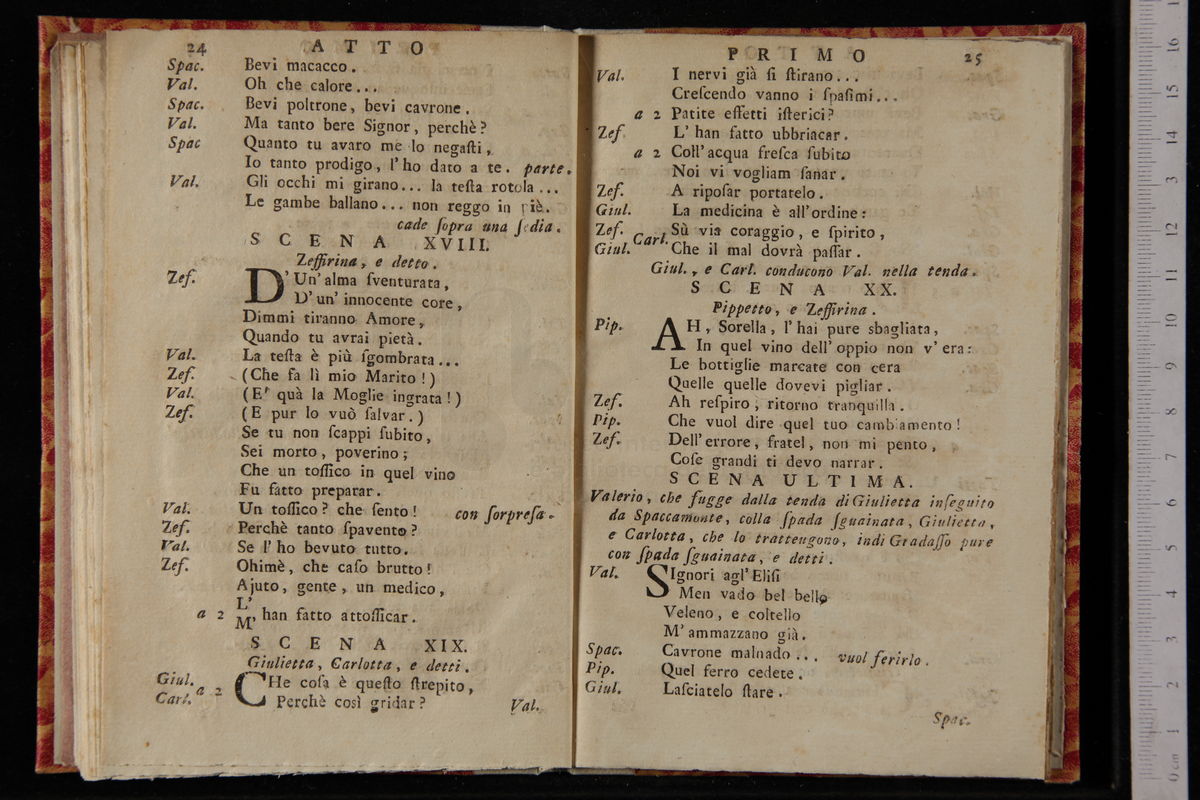 24 ATTO
Spac. Bevi macacco.
Val. Oh che calore...
Spac. Bevi poltrone, bevi cavrone.
Val. Ma tanto bere Signor, perchè?
Spac Quanto tu avaro me lo negaſti,
Io tanto prodigo, l'ho dato a te. parte.
Val. Gli occhi mi girano... la teſta rotola...
Le gambe ballano... non reggo in piè.
cade ſopra una ſedia.
SCENA XVIII.
Zeffirina, e detto.
Zef. D'Un'alma ſventurata,
D'un'innocente core,
Dimmi tiranno Amore,
Quando tu avrai pietà.
Val. La teſta è più ſgombrata...
Zef. (Che fa lì mio Marito!)
Val. (E' quà la Moglie ingrata!)
Zef. (E pur lo vuò ſalvar.)
Se tu non ſcappi ſubito,
Sei morto, poverino;
Che un toſſico in quel vino
Fu fatto preparar.
Val. Un toſſico? che ſento! con ſorpreſa.
Zef. Perchè tanto ſpavento?
Val. Se l'ho bevuto tutto.
Zef. Ohimè, che caſo brutto!
Ajuto, gente, un medico,
L'
a 2 M' han fatto attoſſicar.
SCENA XIX.
Giulietta, Carlotta, e detti.
Giul. a 2 CHe coſa è queſto ſtrepito,
Carl. Perchè così gridar?
Val.
PRIMO 25
Val. I nervi già ſi ſtirano...
Creſcendo vanno i ſpaſimi...
a 2 Patite effetti iſterici?
Zef. L'han fatto ubbriacar.
a 2 Coll'acqua freſca ſubito
Noi vi vogliam ſanar.
Zef. A ripoſar portatelo.
Giul. La medicina è all'ordine:
Zef. Carl. Sù via coraggio, e ſpirito,
Giul. Che il mal dovrà paſſar.
Giul., e Carl. conducono Val. nella tenda.
SCENA XX.
Pippetto, e Zeffirina.
Pip. AH, Sorella, l'hai pure sbagliata,
In quel vino dell'oppio non v'era:
Le bottiglie marcate con cera
Quelle quelle dovevi pigliar.
Zef. Ah reſpiro, ritorno tranquilla.
Pip. Che vuol dire quel tuo cambiamento!
Zef. Dell'errore, fratel, non mi pento,
Coſe grandi ti devo narrar.
SCENA ULTIMA.
Valerio, che fugge dalla tenda di Giulietta inſeguito
da Spaccamonte, colla ſpada ſguainata, Giulietta,
e Carlotta, che lo trattengono, indi Gradaſſo pure
con ſpada ſguainata, e detti.
Val. SIgnori agl'Eliſi
Men vado bel bello
Veleno, e coltello
M'ammazzano già.
Spac. Cavrone malnado... vuol ferirlo.
Pip. Quel ferro cedete.
Giul. Laſciatelo ſtare.
Spac.
0 cm 1 2 3 4 5 6 7 8 9 10 11 12 13 14 15 16